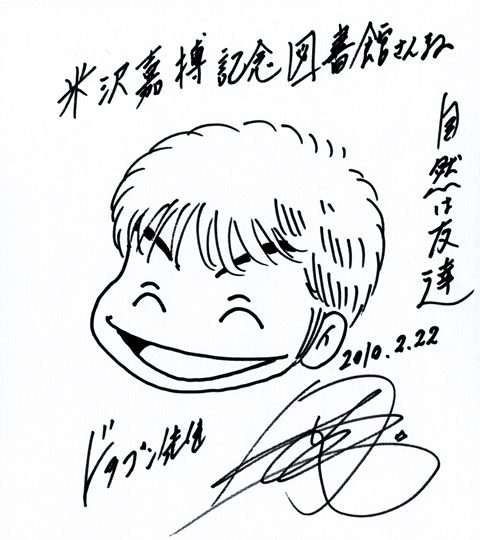 米沢嘉博記念図書館さん江
自然は友達
2010.2.22
ドラブン先生